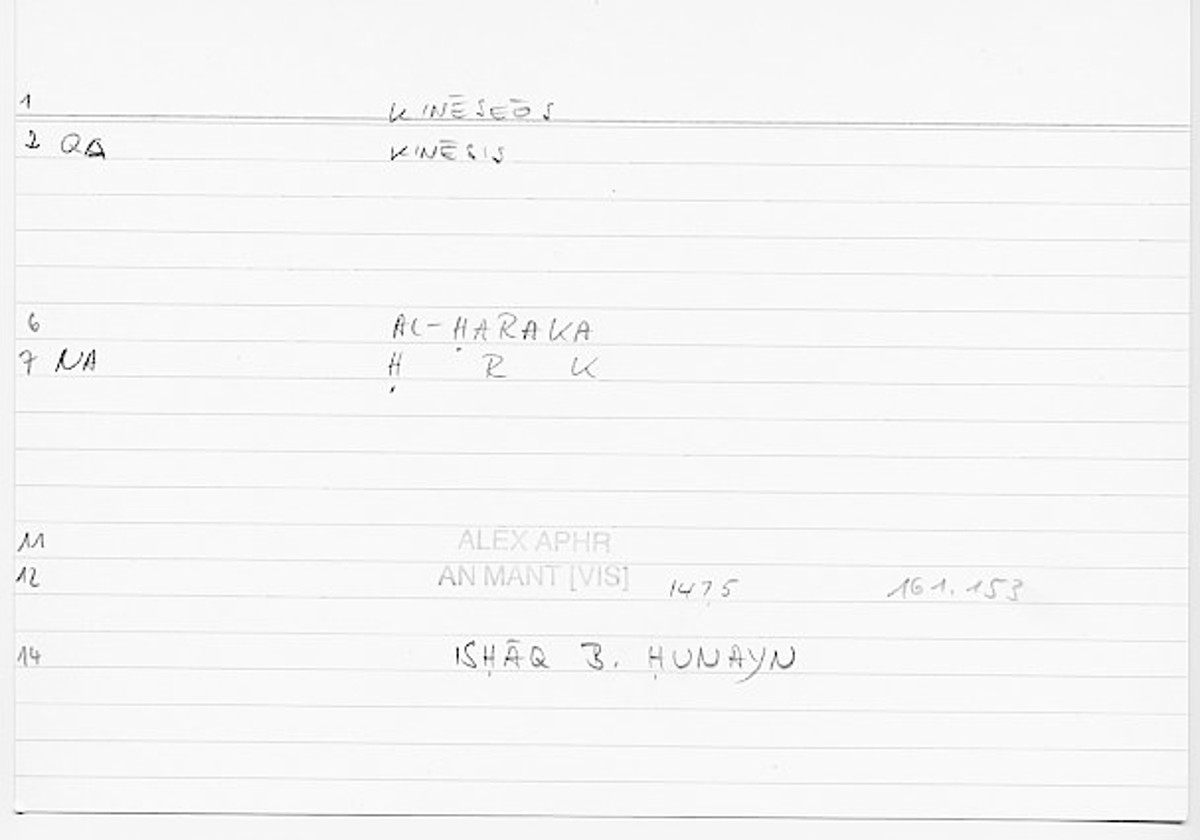 1 KINĒSEŌS
2 QA KINĒSIS
6 AL-ḤARAKA
7 NA Ḥ R K
11 ALEX APHR
12 AN MANT [VIS] 147,5 161.153
14 ISḤĀQ B. ḤUNAYN